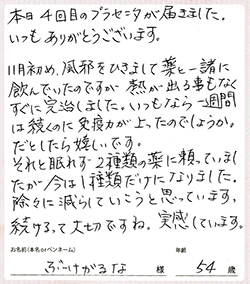 本日4回目のプラセンタが届きました.
いつもありがとうございます.
11月初め、風邪をひきまして薬と一諸に
飲んでいたのですが 熱が出る事もなく
すぐに完治しました。いつもなら一週間
は続くのに免疫力が上ったのでしょうか。
だとしたら嬉しいです。
それと眠れず2種類の薬に頼っていまし
たが今は1種類だけになりました。
除々に減らしていこうと思っています。
続けるって大切ですね。実感しています。
お名前(本名orペンネーム) 年齢
ぶーけがるな 様 54 歳